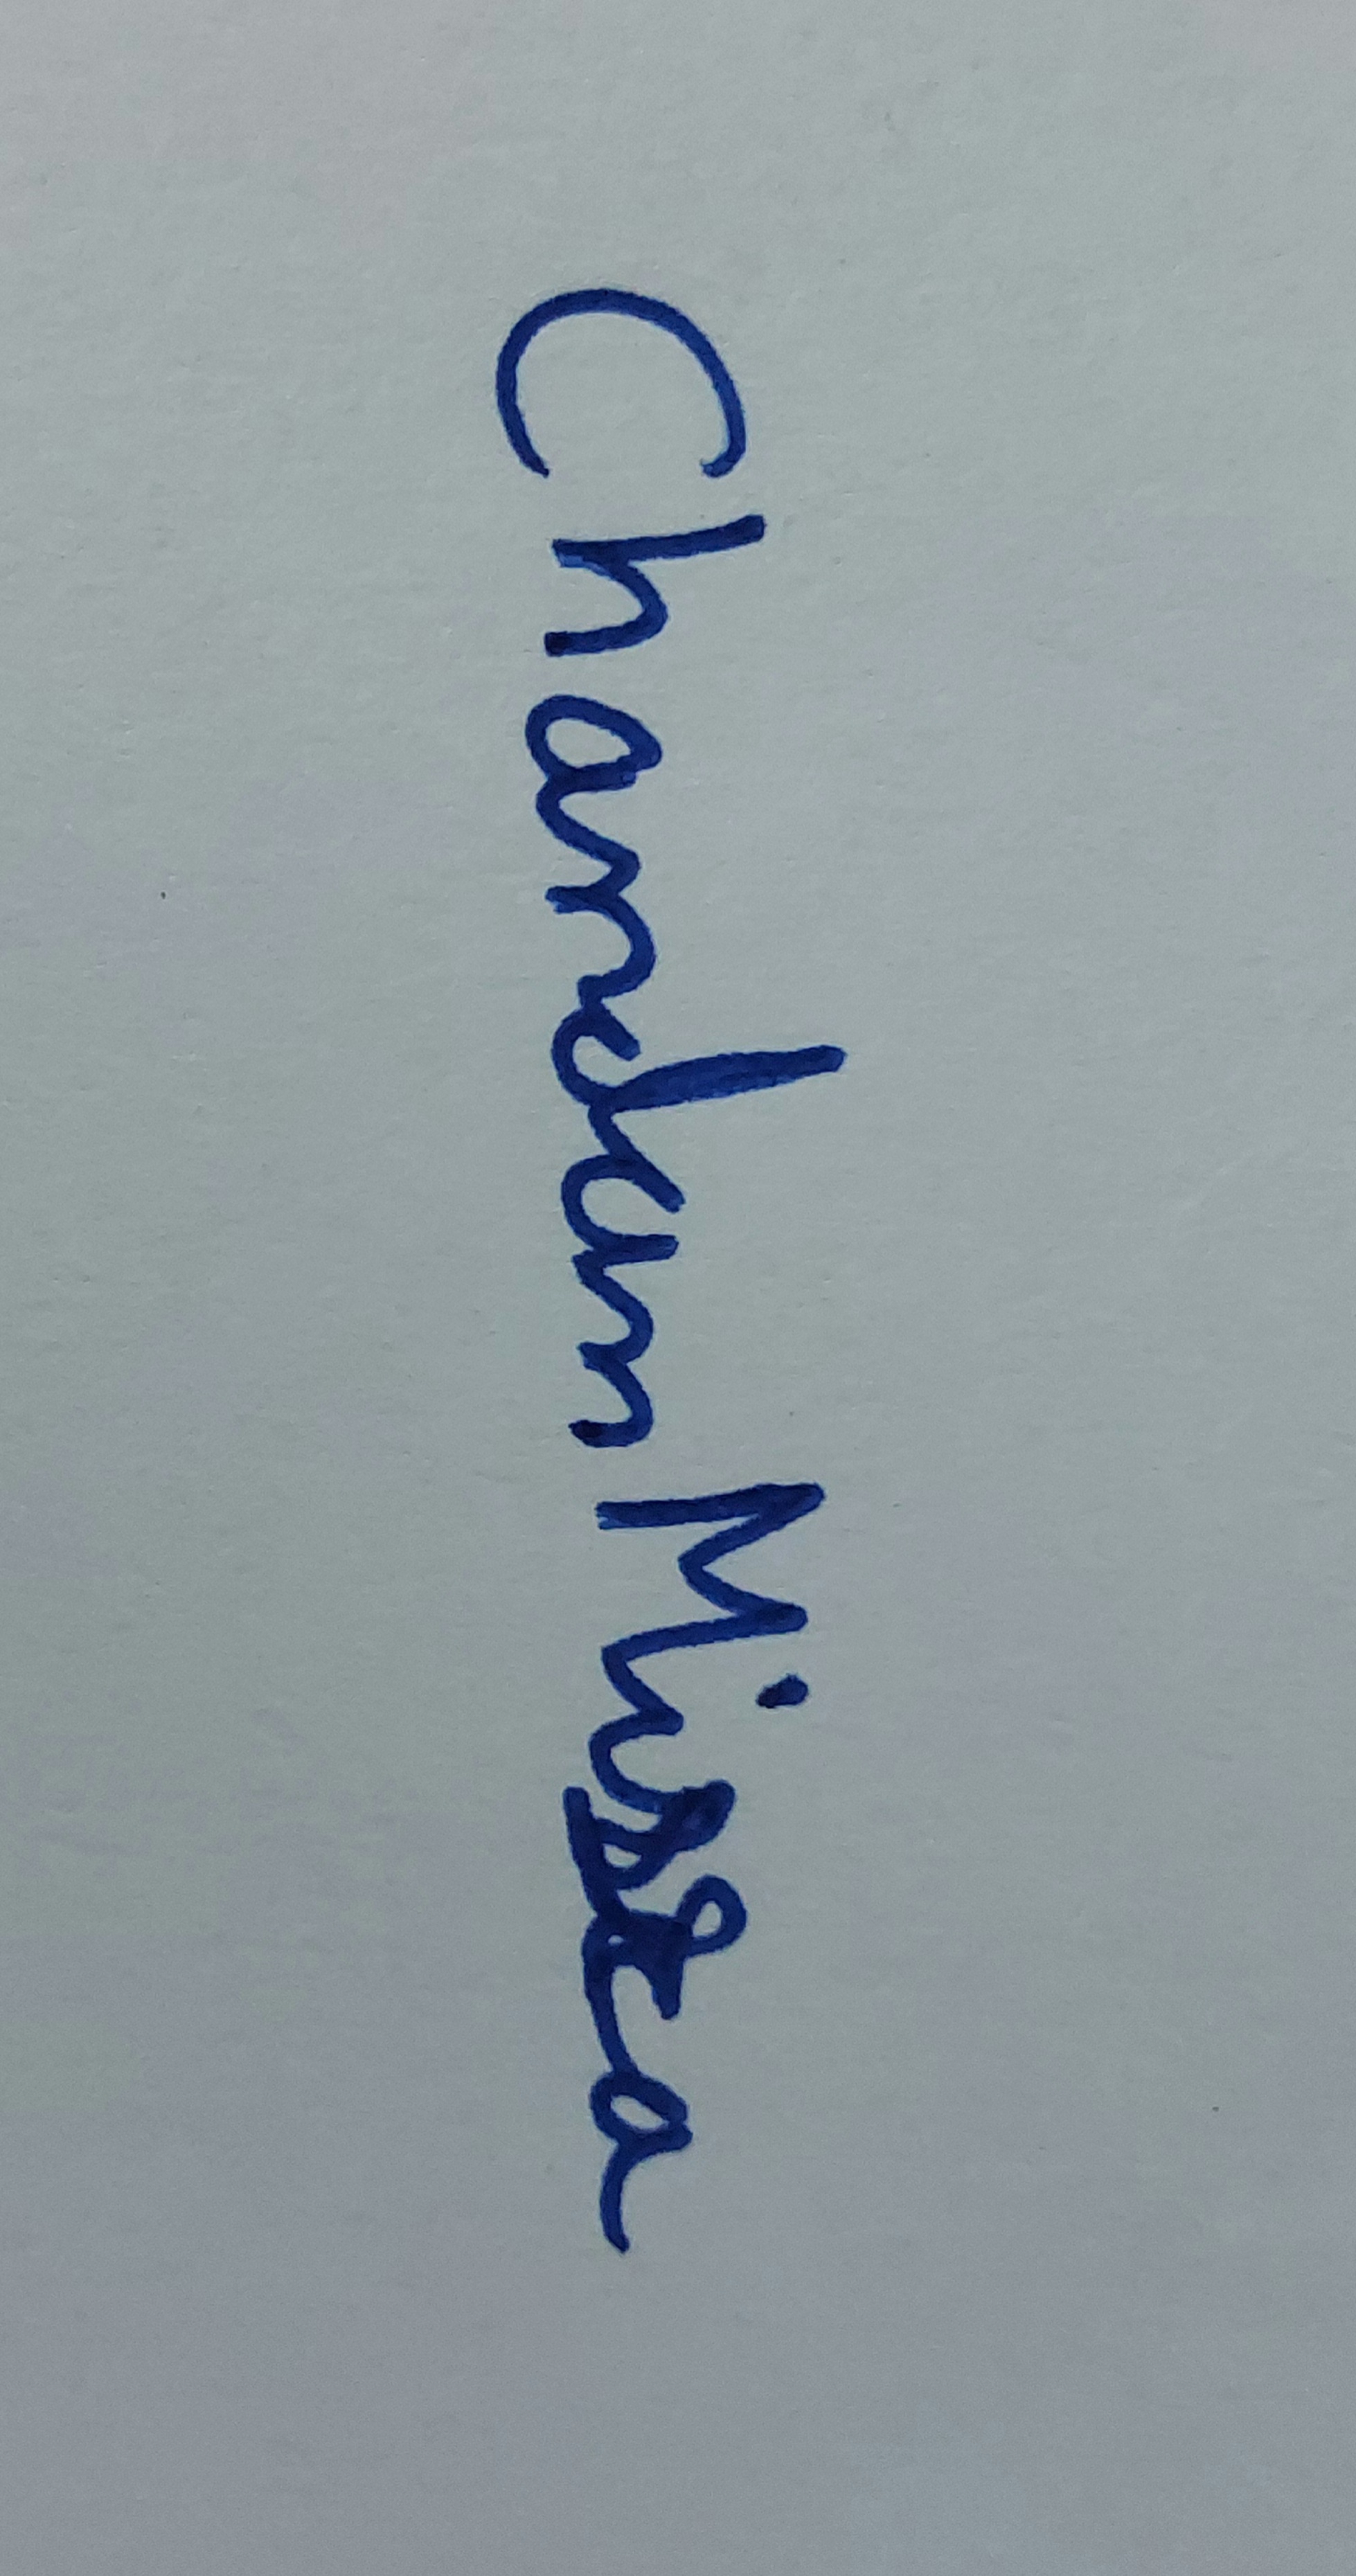 Chandan Misra